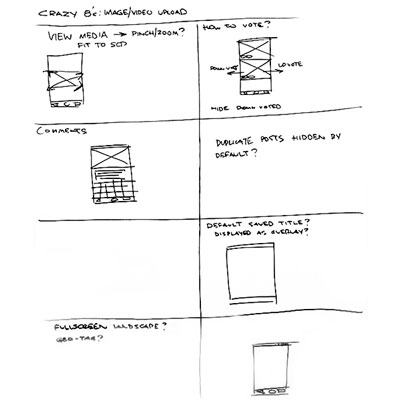 CRAZY 8's: IMAGE/VIDEO UPLOAD
VIEW MEDIA → PINCH/ZOOM?
FIT TO
HOW TO VOTE?
UPVOTE
HIDE DOWN VOTED
COMMENTS
DUPLICATE POSTS HIDDEN BY
DEFAULT?
DEFAULT SAVED TITLE?
DISPLAYED AS OVERLAY?
FULLSCREEN LANDSCAPE?
GEO-TAG?